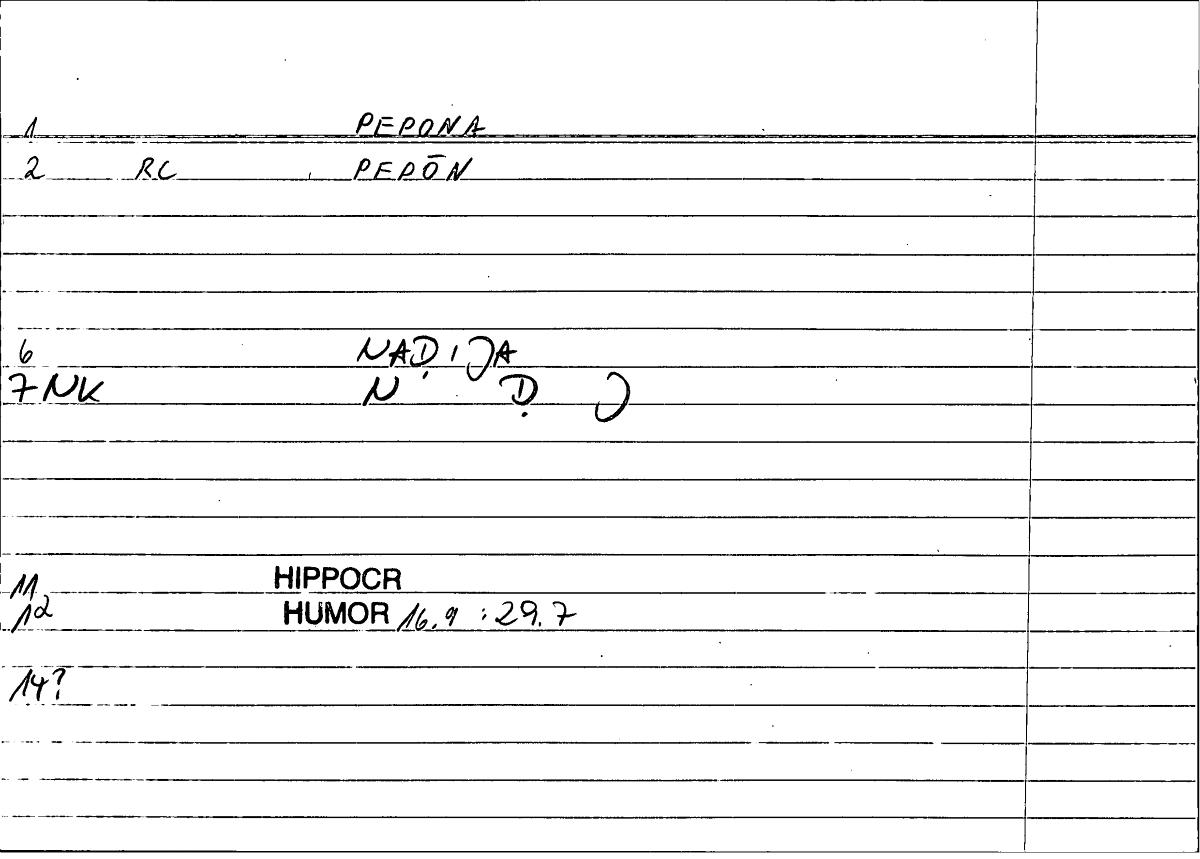 1 PEPONA
2 RC PEPŌN
6 NAḌIJA
7 NK N Ḍ J
11 HIPPOCR
12 HUMOR 16.9 : 29.7
14?